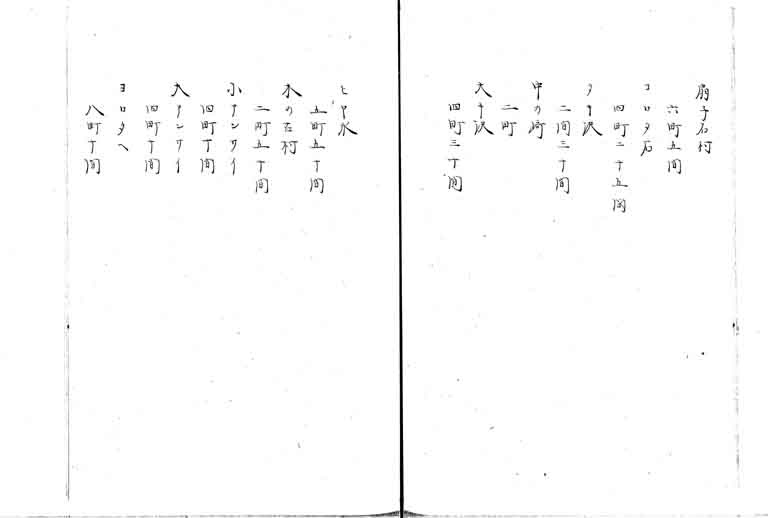 扇子石村
六町五間
コロタ石
四町二十五間
タキ沢
二間三十間
中の澗
二町
大キ沢
四町三十間
ヒヤ水
五町五十間
木の古村
二町五十間
小アンワイ
四町十間
大アンワイ
四町十間
ヨロタヘ
八町十間